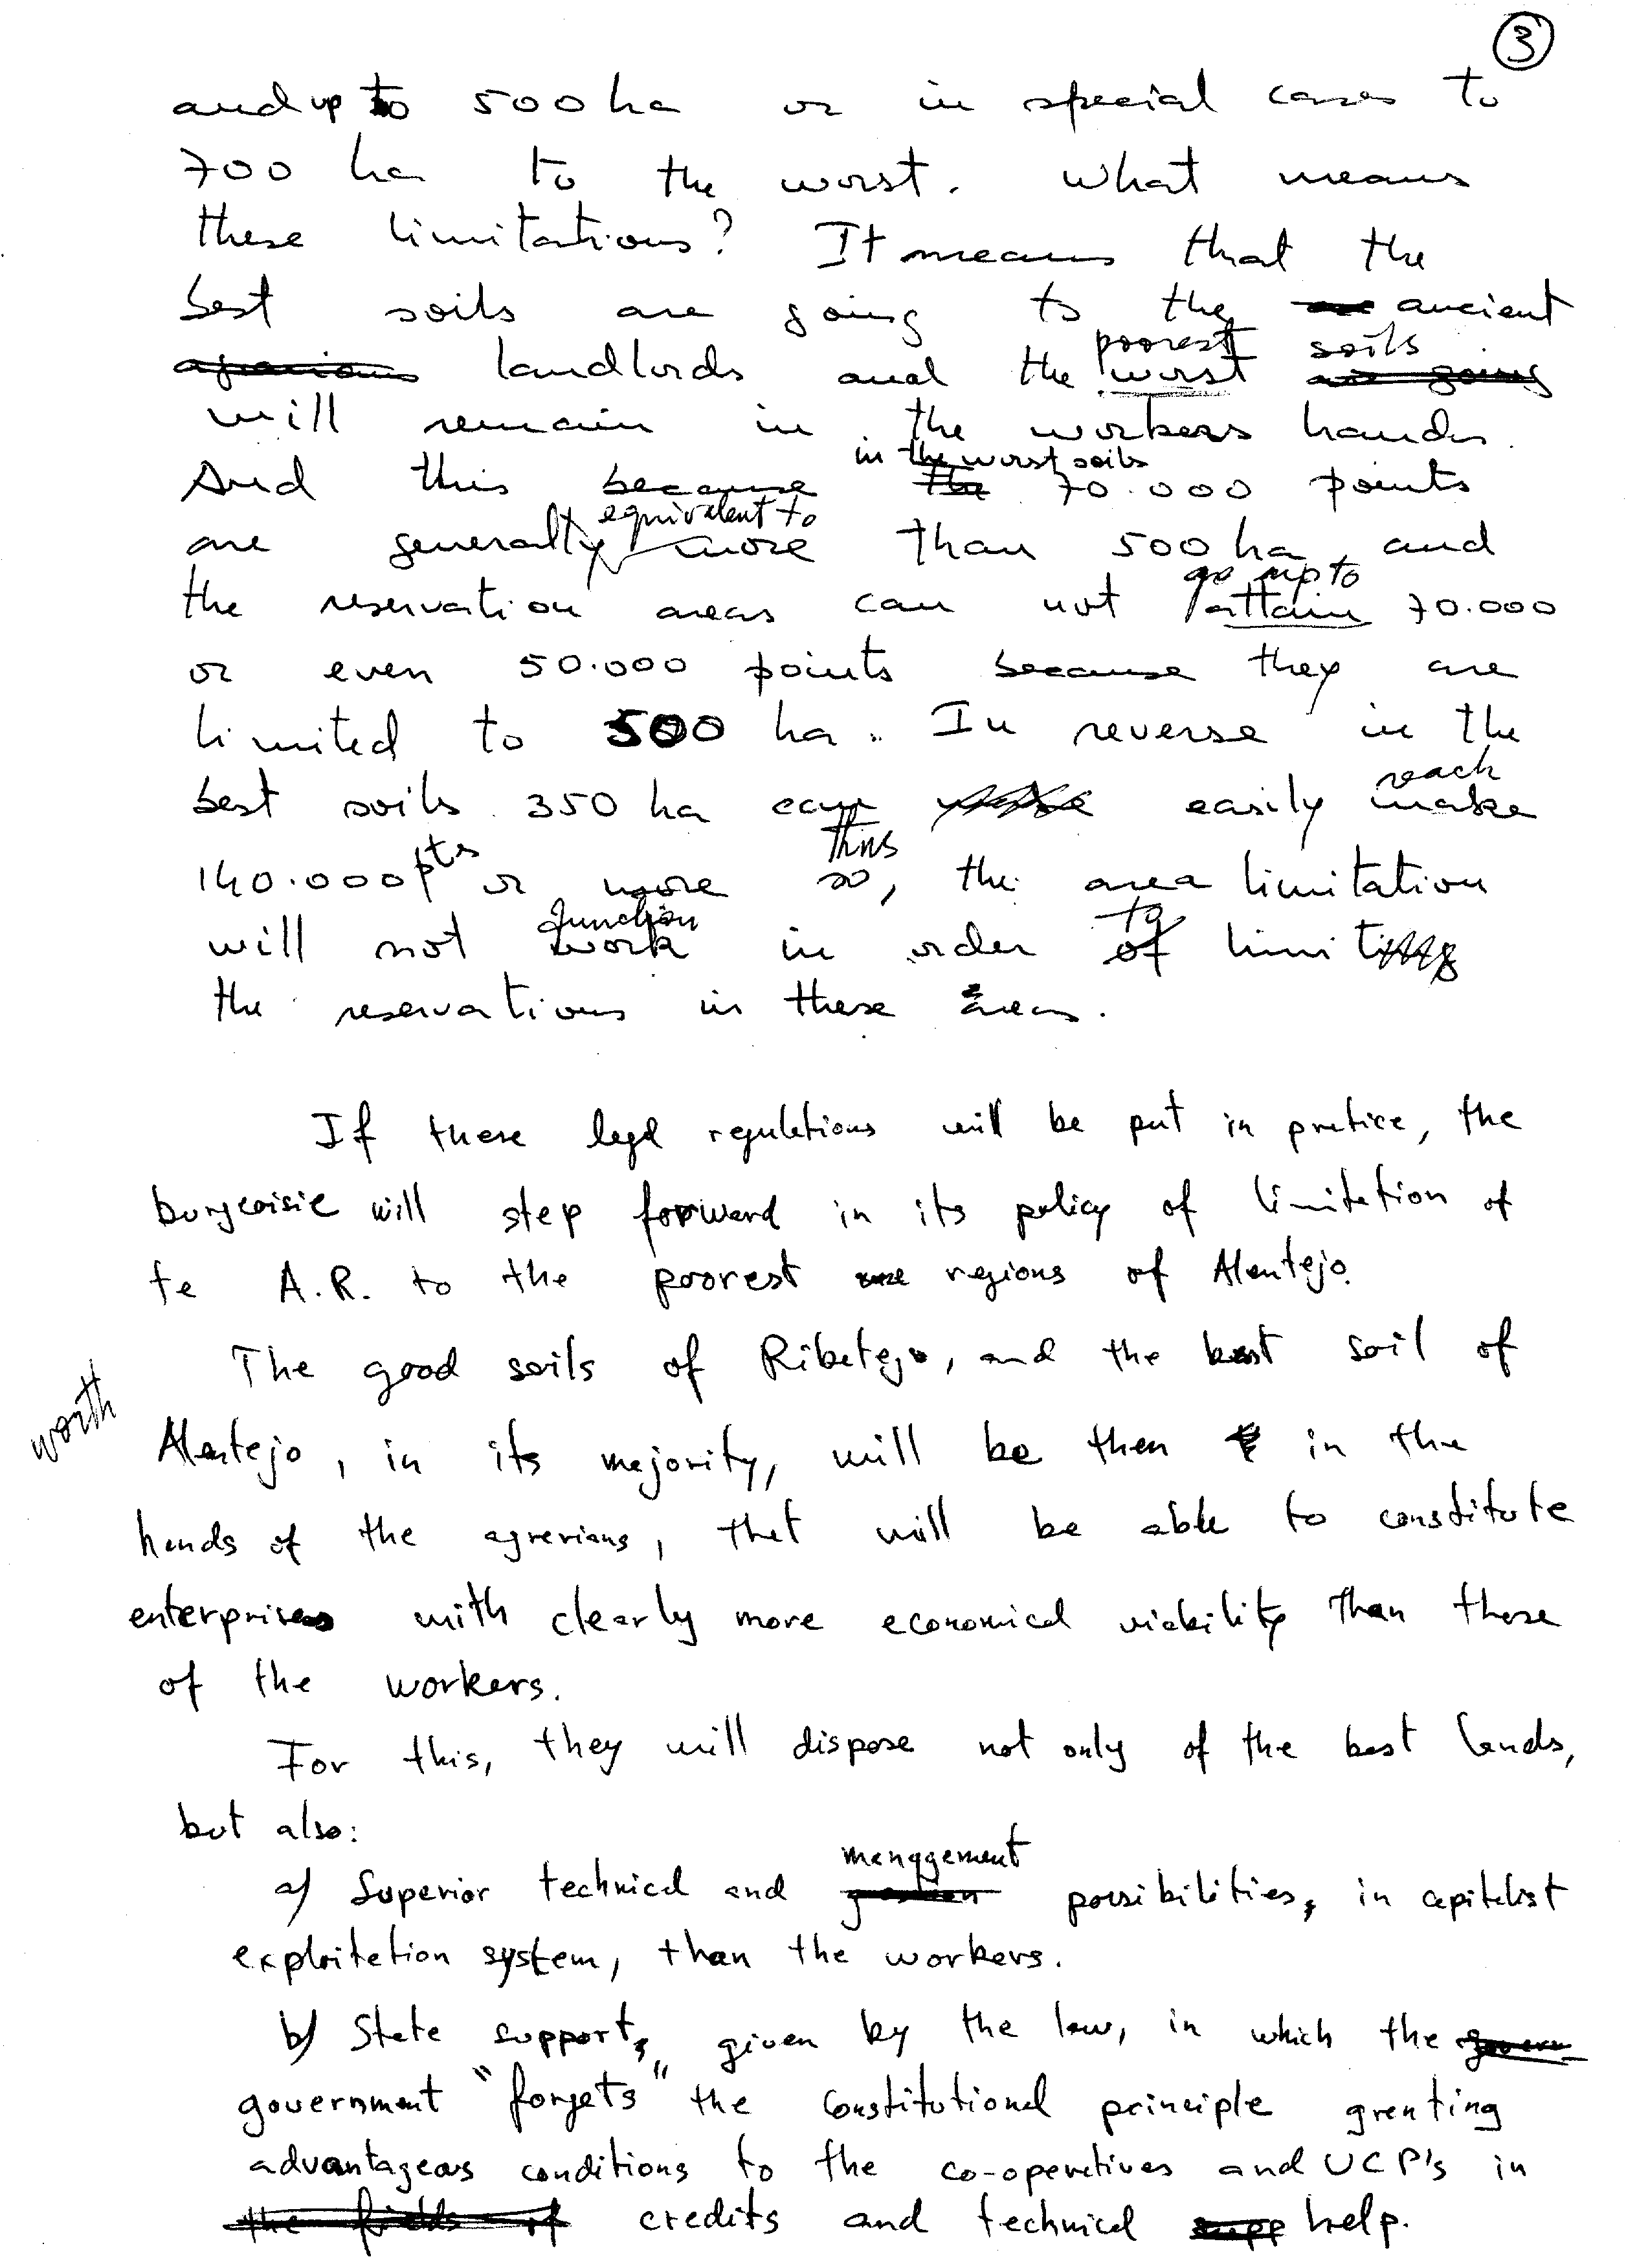 3
and up to 500 ha or in special cases to
700 ha to the worst. What means
these limitations? It means that the
best soils are going to the ancient
poorest soils
landlords and the worst are going
will remain in the workers hands.
in the worst soils
And this because the 70.000 points
equivalent to
are generally more than 500 ha, and
go up to
the reservation areas can not attain 70.000
or even 50.000 points because they are
limited to 500 ha. In reverse in the
reach
best soils 350 ha can easily make
Thus
140.000 pts or more so, the area limitation
function to
will not work in order of limit
the reservations in these areas.
If these legal regulations will be put in pratice, the
burgeoisie will step forward in its policy of limitation of
te A.R. to the poorest regions of Alentejo.
The good soils of Ribatejo, and the best soil of
worth
Alentejo, in its majority, will be then in the
hands of the agrarians, that will be able to constitute
enterprises with clearly more economical viability than those
of the workers.
For this, they will dispose not only of the best lands,
but also:
management
a) Superior technical and possibilities, in capitalist
exploitation system, than the workers.
b) State support, given by the law, in which the
government "forgets" the constitutional principle granting
advantageous conditions to the co-operatives and UCP's in
the fields of credits and technical supp help.